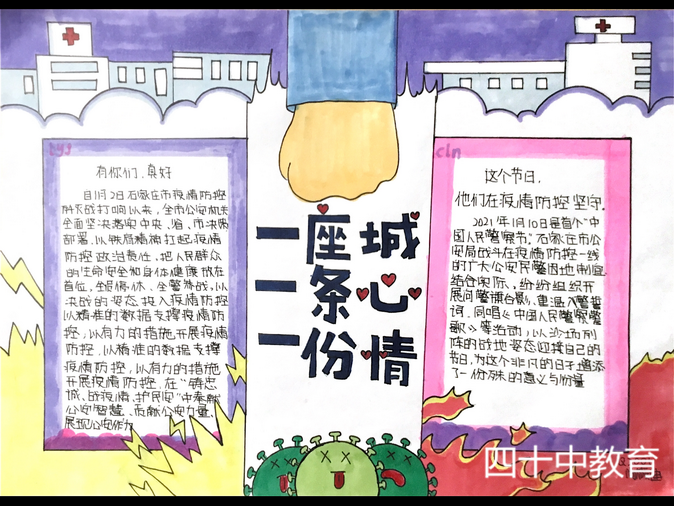 有你们,真好
自1月2日石家庄市疫情防控
歼灭战打响以来,全市公安机关
全面坚决落实中央、省、市决策
部署,以铁肩精神扛起疫情
防控政治责任,把人民群众
的生命安全和身体健康放在
首位,全警备战,以
决战的姿态投入疫情防控
以精准的数据支撑疫情防
控,以有力的措施开展疫情
防控,以精准的数据支撑
疫情防控,以有力的措施
开展疫情防控,在“铸忠
城、战疫情、护民安”中奉献
公安智慧,贡献公安力量,
展现公安作为
一座城
一条心
一份情
cln
这个节日,
他们在疫情防控坚守
2021年1月10日是首个“中
国人民警察节”,石家庄市公
安局战斗在疫情防控一线
的广大公安民警因地制宜
结合实际,纷纷组织开
展向警旗合影、重温入警誓
词、同唱《中国人民警察警
歌》等活动,以沙场列
阵的战地姿态迎接自己的
节日,为这个非凡的日子增添
了一份特殊的意义与份量
四十中教育